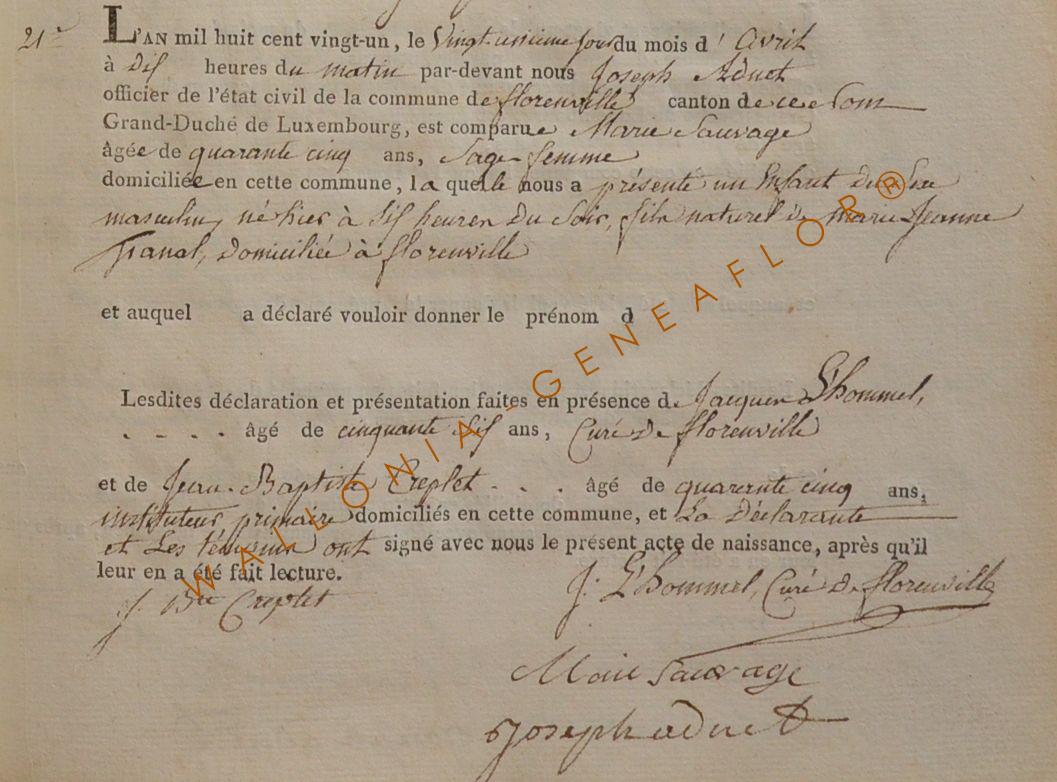 21e L'AN mil huit cent vingt-un, le Vingt-unieme jour du mois d' Avril
à dix heures du matin par-devant nous Joseph Aduet
officier de l'état civil de la commune de florenville canton de
Grand-Duché de Luxembourg, est comparue Marie Sauvage
âgée de quarante cinq ans, Sage-femme
domiciliée en cette commune, laquelle nous a présenté un Enfant du Sexe
masculin, né hier à dix heures du Soir, fils naturel de marie Jeanne
domiciliée à florenville
et auquel a déclaré vouloir donner le prénom d
Lesdites déclaration et présentation faites en présence de Jacques L'hommel,
. - . . âgé de cinquante Six ans, Curé de florenville
et de Jean-Baptiste Creplet - . . âgé de quarante cinq ans,
instituteur primaire domiciliés en cette commune, et La Déclarante
et Les témoins ont signé avec nous le présent acte de naissance, après qu'il
leur en a été fait lecture.
J. Bte Creplet
J. L'hommel, Curé de florenville
Marie Sauvage
Joseph aduet
WALLONIA-GENEAFLOR®